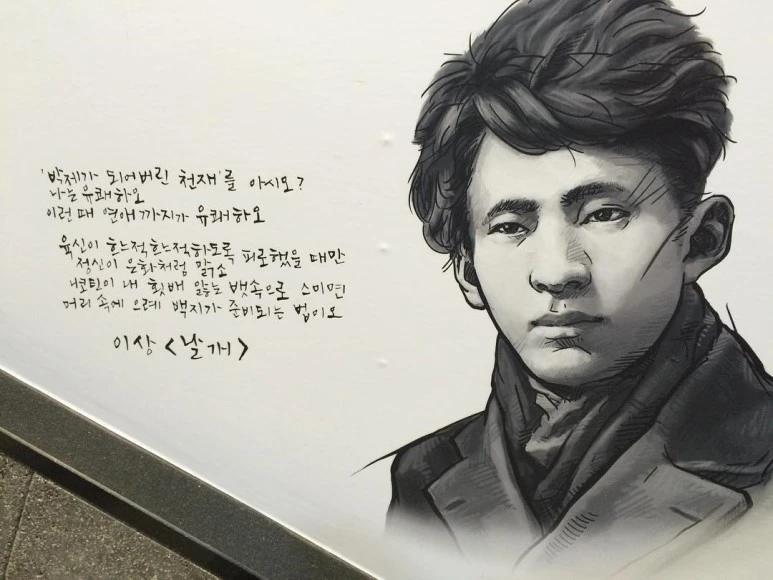 '박제가 되어버린 천재'를 아시오?
나는 유쾌하오
이런 때 연애까지가 유쾌하오
육신이 흐느적흐느적하도록 피로했을 때만
정신이 은화처럼 맑소
니코틴이 내 횟배 앓는 뱃속으로 스미면
머리 속에 으레 백지가 준비되는 법이오
이상 <날개>